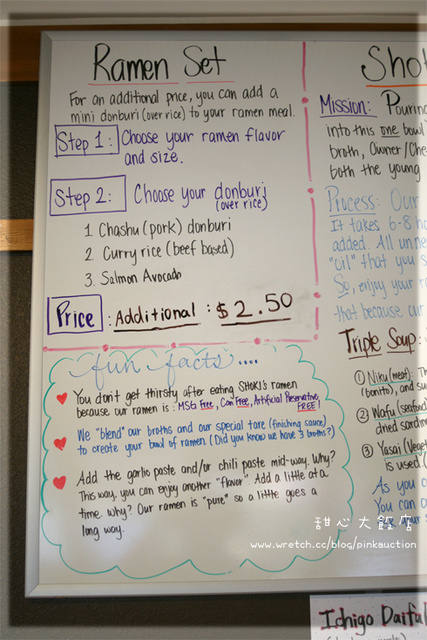 Ramen Set
For an additional price, you can add a
mini donburi (over rice) to your ramen meal.
Step 1: Choose your ramen flavor
and size.
Step 2: Choose your donburi
(over rice)
1. Chashu (pork) donburi
2. Curry rice (beef based)
3. Salmon Avocado
Price : Additional : $2.50
fun facts....
You don't get thirsty after eating SHOKI's ramen
because our ramen is : MSG Free, Corn Free, Artificial Preservative
FREE!
We "blend" our broths and our special tare (finishing sauce)
to create your bowl of ramen (Did you know we have 3 broths?)
Add the garlic paste and/or chili paste mid-way. Why?
This way, you can enjoy another "flavor". Add a little at a
time. Why? Our ramen is "pure" so a little goes a
long way.
Mission: Pourin
into this one bowl
broth, Owner/Che
both the young
Process: Our
It takes 6-8 h
added. All un
"oil" that you s
So, enjoy your r
that because our
Triple Soup:
① Niku (meat): Th
(bonito), and
② Wafu (seafood)
dried sardin
③ Yasai (Veget
is used (
As you
You can
甜心大飯店
www.wretch.cc/blog/pinkauction
Ichigo Daifu